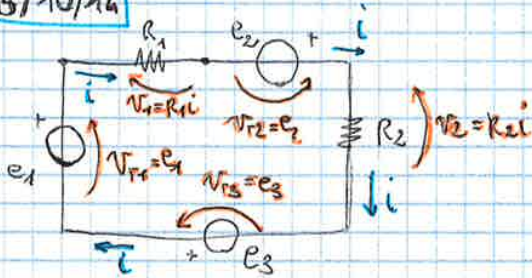 /10/14
R1 e2 + i
i v1=R1i
vr2=e2 R2 v2=R2i
+ e1 vr1=e1 vr3=e3
i
i + e3